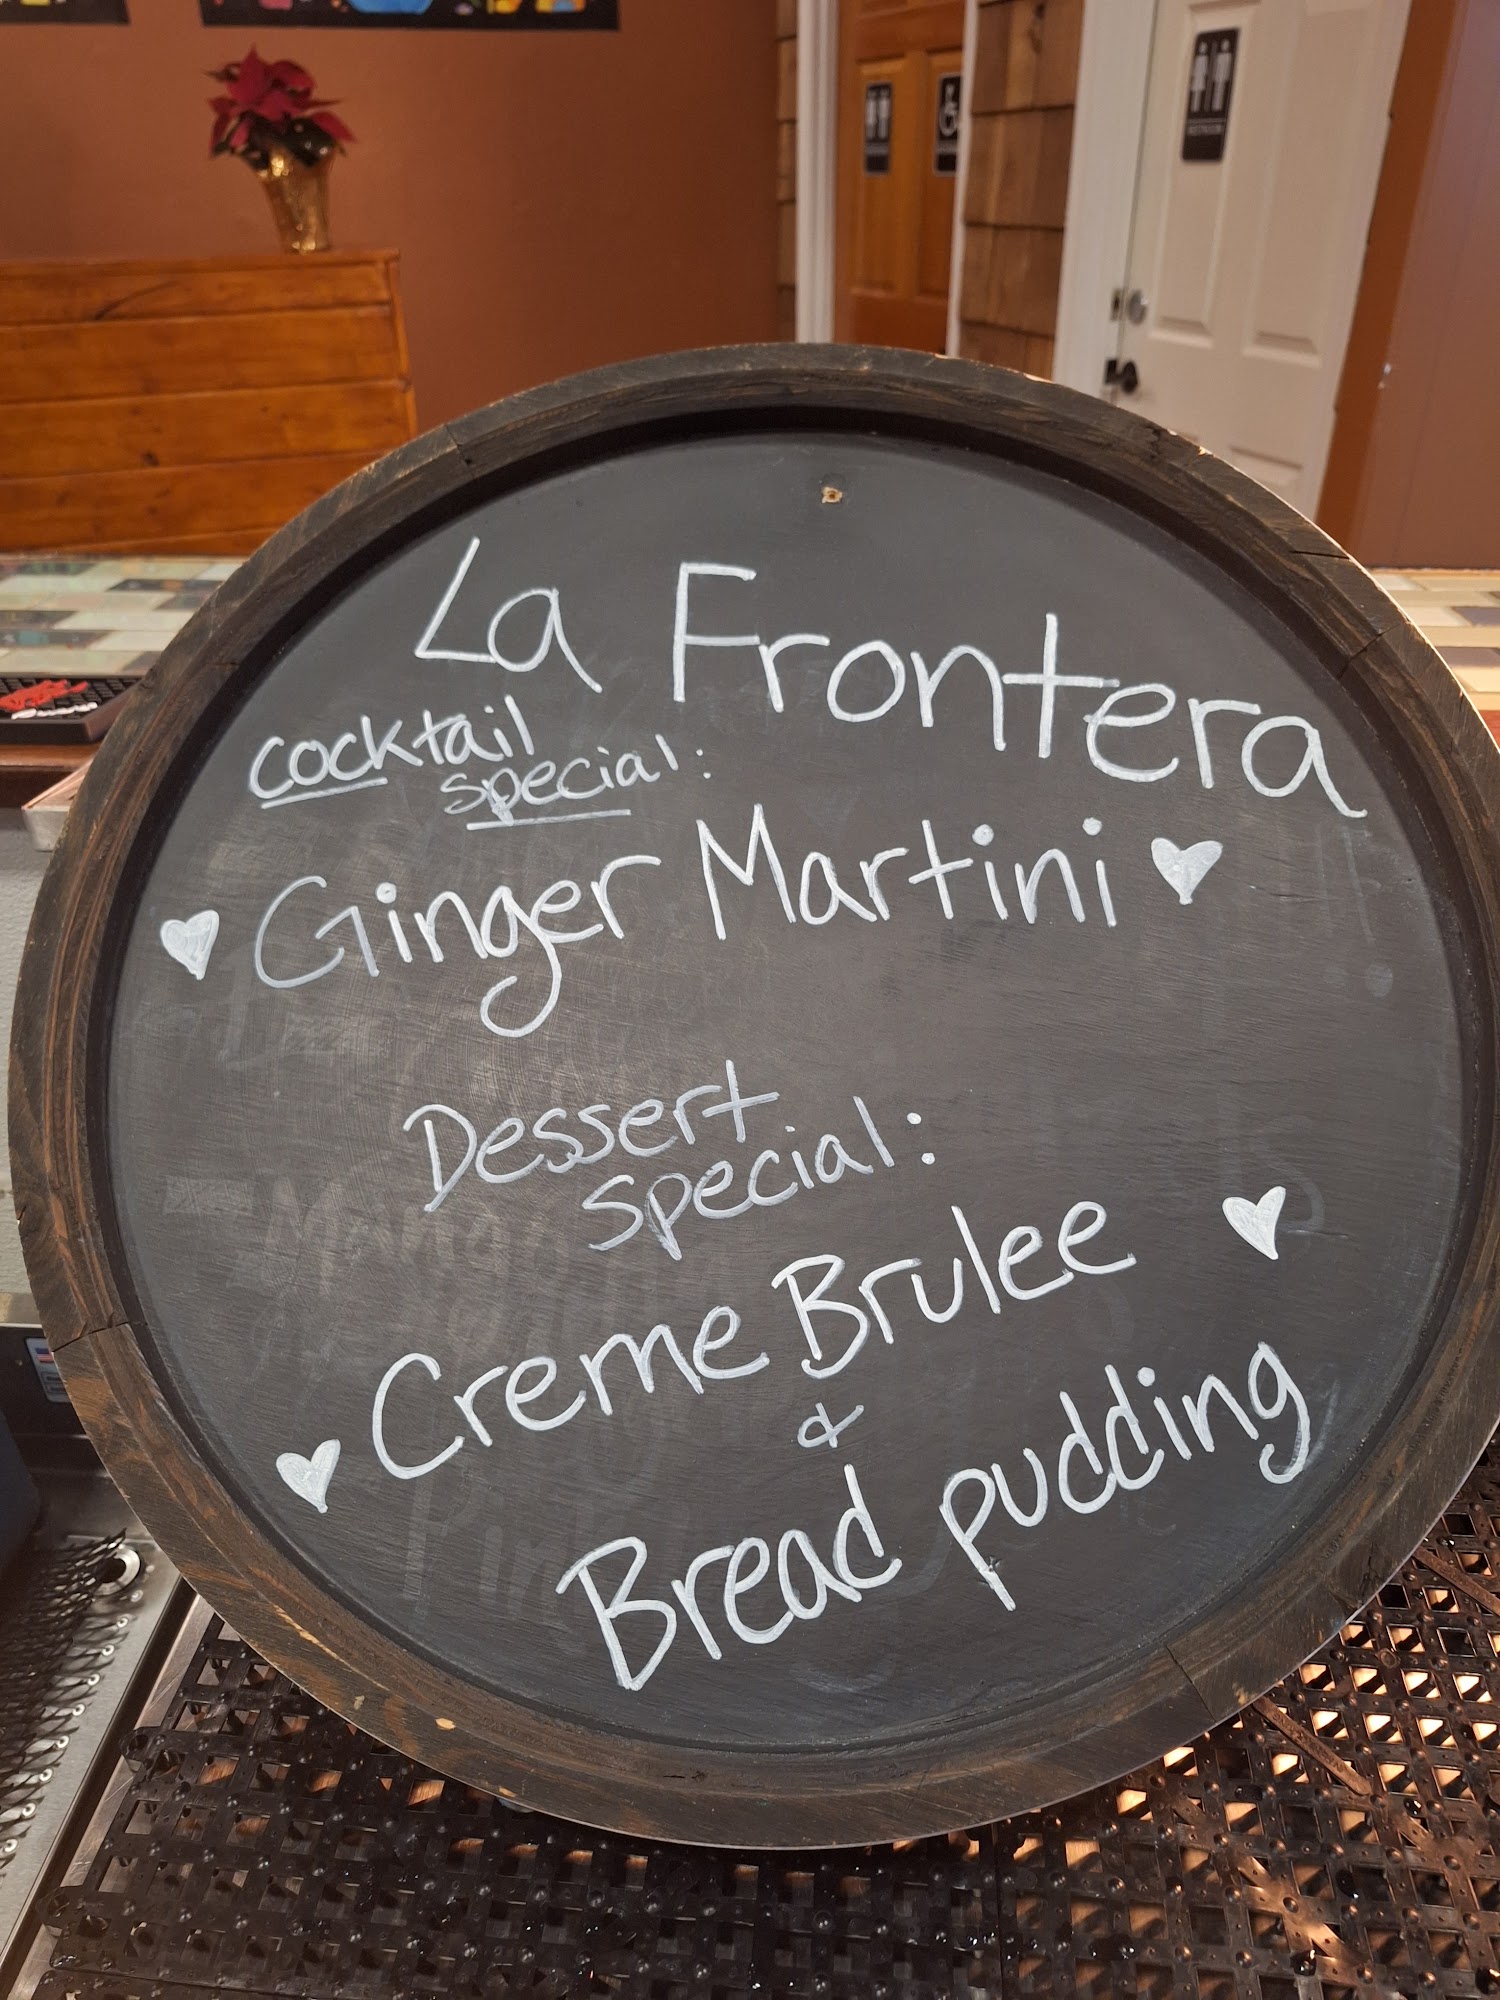 La Frontera
cocktail
special:
Ginger Martini
Dessert
special:
Creme Brulee
&
Bread pudding